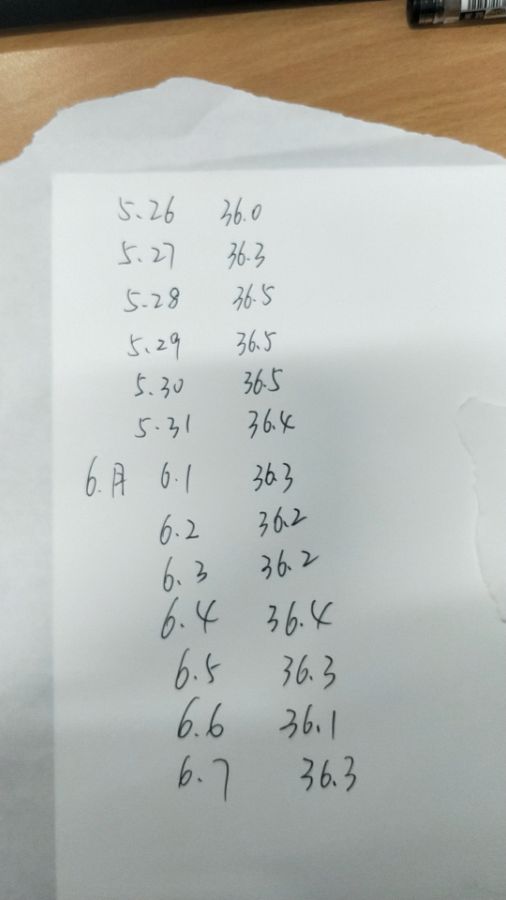 5.26 36.0
5.27 36.3
5.28 36.5
5.29 36.5
5.30 36.5
5.31 36.4
6.月 6.1 36.3
6.2 36.2
6.3 36.2
6.4 36.4
6.5 36.3
6.6 36.1
6.7 36.3